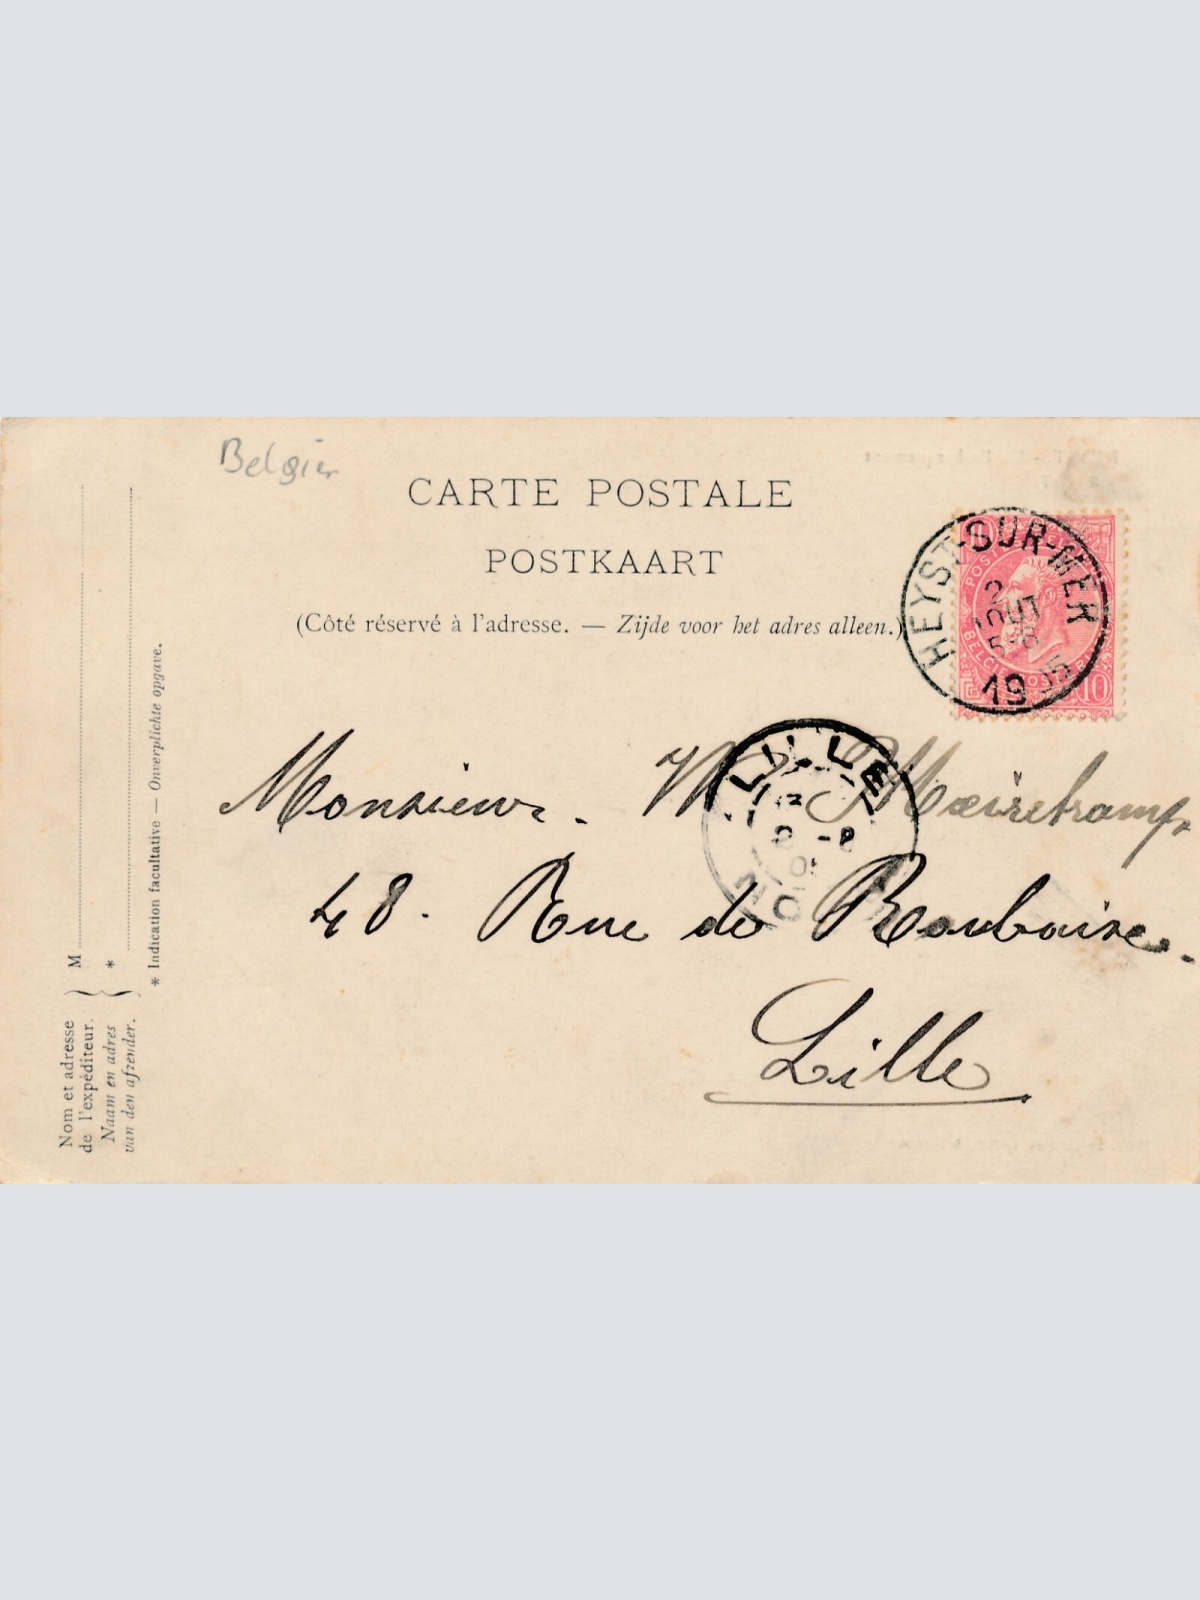 Belgien
CARTE POSTALE
POSTKAART
(Côté réservé à l'adresse. — Zijde voor het adres alleen.)
HEYST-SUR-MER
2
AOUT
5-6
1905
10
10
LILLE
NORD
Monsieur.
48. Rue de Roubaise.
Lille
Nom et adresse
de l'expéditeur.
Naam en adres
van den afzender.
M
*
* Indication facultative — Onverplichte opgave.